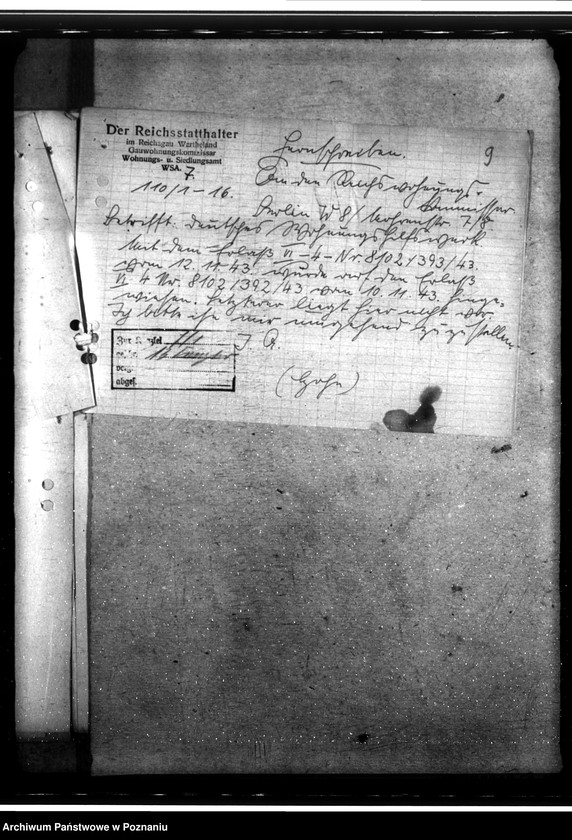 Der Reichsstatthalter
im Reichsgau Wartheland
Gauwohnungskommissar
Wohnungs- u. Siedlungsamt
WSA. 7
110/1-16.
9
Fernschreiben.
An den Reichswohnungs-
kommissar
Berlin W 8/ Mohrenstr. 7/8
Betrifft: deutsches Wohnungshilfswerk
Mit dem Erlaß VI-4-Nr. 8102/393/43.
vom 12.11.43. wurde auf den Erlaß
VI 4 Nr. 8102/392/43 vom 10.11.43. hinge-
wiesen. Letzterer liegt hier nicht vor.
Ich bitte ihn mir umgehend zuzustellen.
I. A.
Zur Kanzlei
verg.
abges.